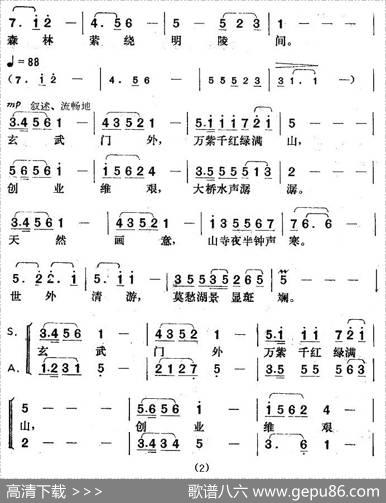 7. i 2 4. 5 6 5 5 2 3 1 —
森林 萦绕 明 陵 间。
♩=88
(7. i 2 — 4. 5 6 — 5 5 5 2 3 3 1. 1 —)
mp 叙述、流畅地
3.4 5 6 1 — 4 3 5 2 1 — 5.1 1 1 1 7 2 i 5 — — —
玄武 门外, 万紫千红绿满 山,
5 6 5 6 i — i 5 6 2 4 — 3.5 5 5 5 5 1 3 5 — — —
创业 维艰, 大桥水声潺 潺。
3.4 5 6 1 — 4 3 5 2 1 — i 3 5 5 6 7 7 6. 6 —
天然 画意, 山寺夜半钟声 寒。
5. 2 2. i 5. i i — 3 5 5 3 5 2 6 5 5 — — —
世外 清游, 莫愁湖景 显斑 斓。
S. 3.4 5 6 1 — 4 3 5 2 1 — 5.1 1 1 1 7 2 i
玄武 门外 万紫 千红 绿满
A. 1.2 3 1 5 — 2 1 2 7 5 — 3.5 5 5 5 5 6 3
5 — — — 5.6 5 6 1 — 1 5 6 2 4 —
山, 创业 维艰
2 — — — 3.4 3 4 5 — 3. 6 1 —
(2)
高清下载 >>> 歌谱八六 www.gepu86.com